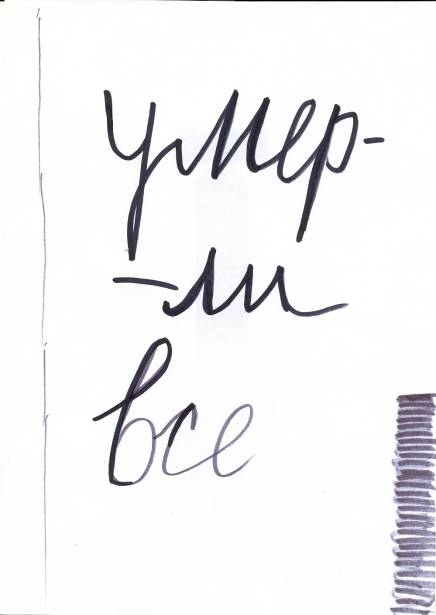 умер-
-ли
все